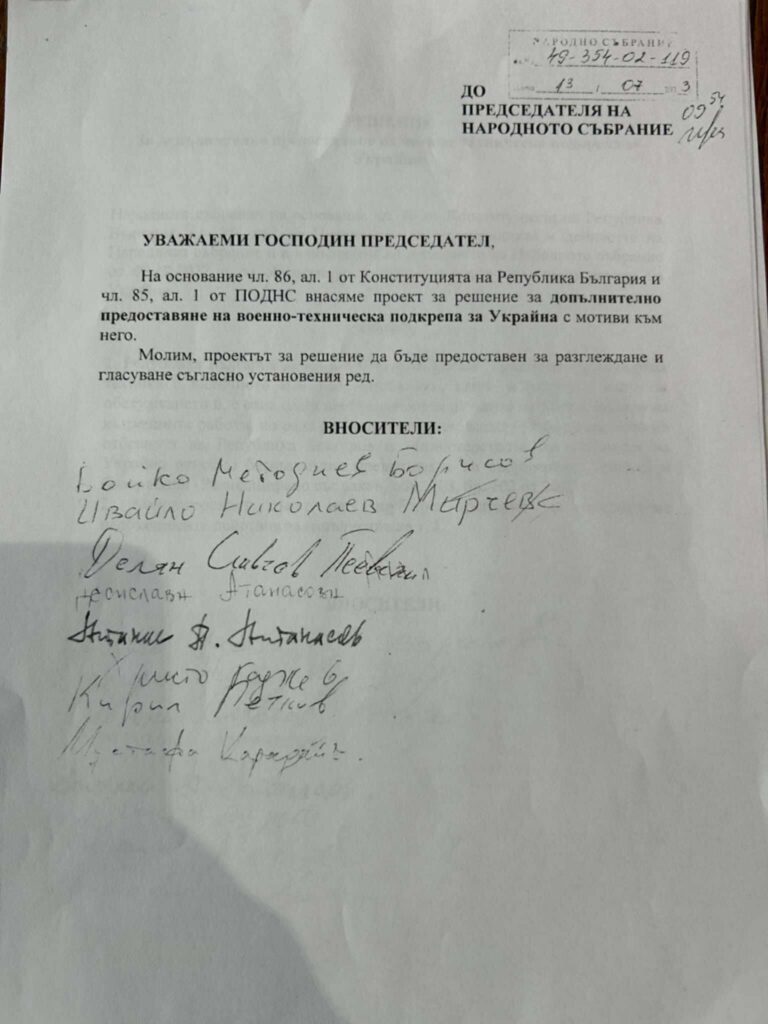 НАРОДНО СЪБРАНИЕ
49-354-02-119
13 / 07 3
09 54
ДО
ПРЕДСЕДАТЕЛЯ НА
НАРОДНОТО СЪБРАНИЕ
УВАЖАЕМИ ГОСПОДИН ПРЕДСЕДАТЕЛ,
На основание чл. 86, ал. 1 от Конституцията на Република България и
чл. 85, ал. 1 от ПОДНС внасяме проект за решение за допълнително
предоставяне на военно-техническа подкрепа за Украйна с мотиви към
него.
Молим, проектът за решение да бъде предоставен за разглеждане и
гласуване съгласно установения ред.
ВНОСИТЕЛИ:
Бойко Методиев Борисов
Ивайло Николаев Мирчев
Делян Славчов Пеевски
Десислава Атанасова
Атанас П. Атанасов
Христо Гаджев
Кирил Петков
Мустафа Карадайъ